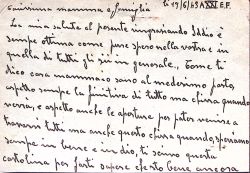 Carissima mamma e famiglia li 19/6/43 A XXI E.F.
La mia salute al presente ingrasiando Iddio è
sempre ottima come pure spero nella vostra e in
quella di tutti gli zii in generale, Come ti
dico cara mammas sono al medesimo posto,
aspetto sempre la finitiva di tutto ma chissa quando
verra, e aspetto anche le aperture per poter venire a
trovarvi tutti ma anche questo chissa quando, speriamo
sempre in bene e in dio, ti scrivo questa
cartolina per farti sapere che sto bene ancora